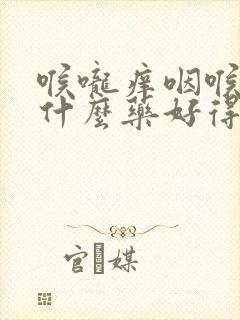 喉嚨痒咽喉
什麼藥好得
官媒